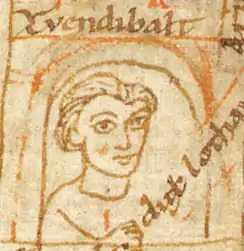 Zvendibalt
dux lotha